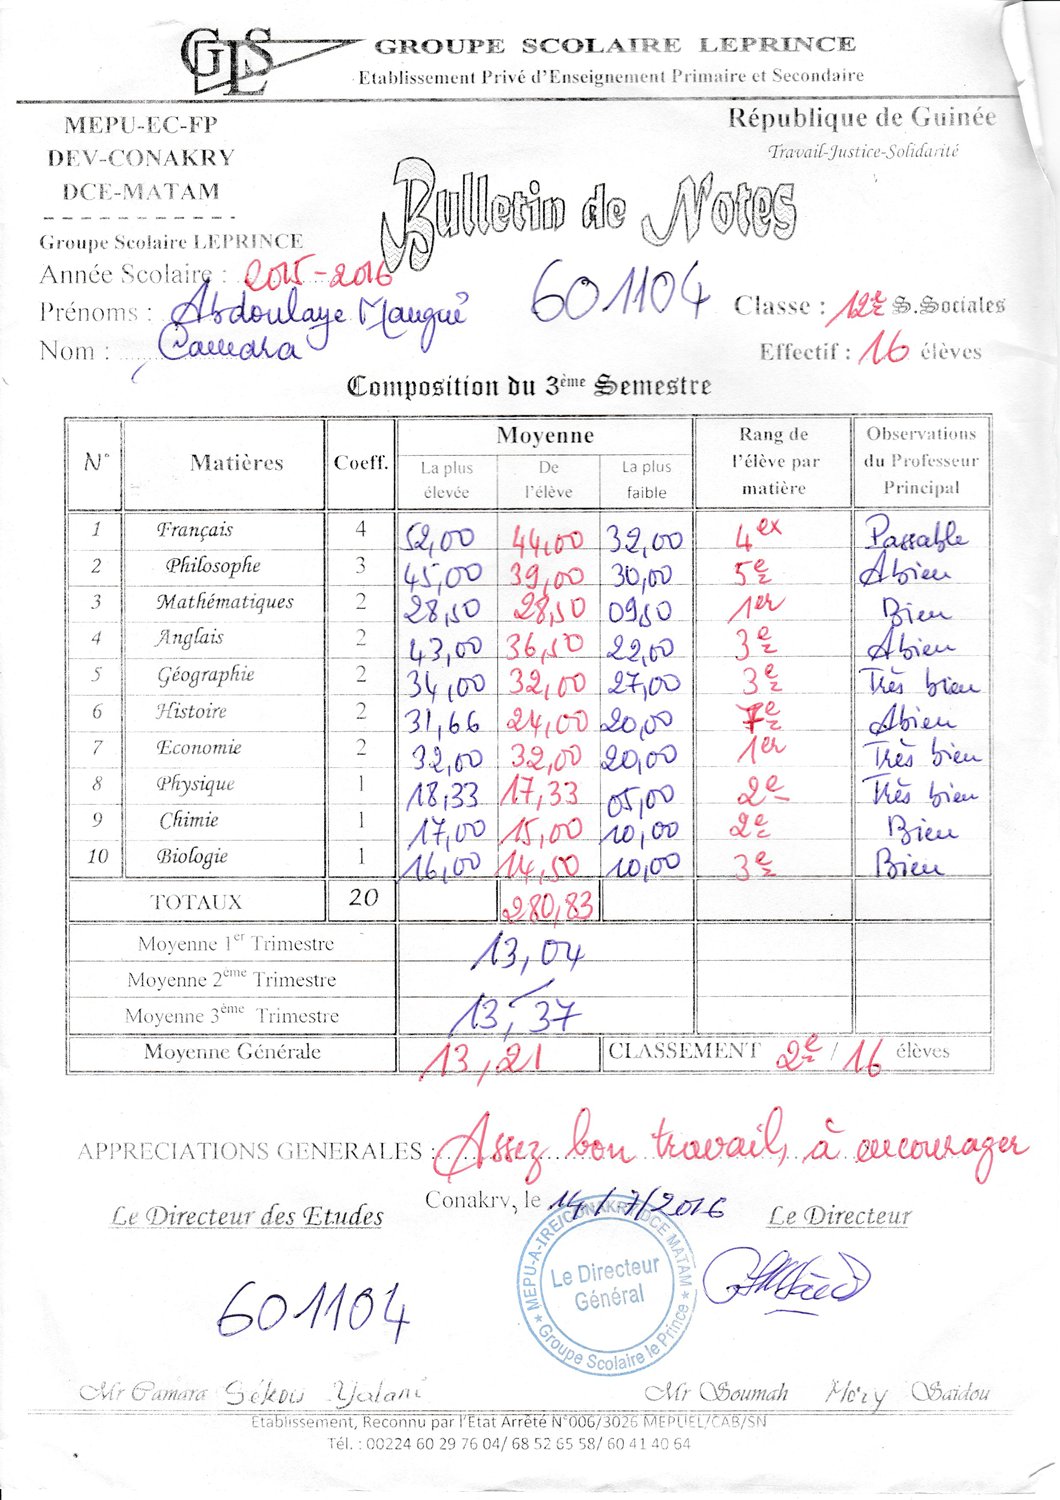 GLS
GROUPE SCOLAIRE LEPRINCE
Etablissement Privé d'Enseignement Primaire et Secondaire
MEPU-EC-FP
DEV-CONAKRY
DCE-MATAM
République de Guinée
Travail-Justice-Solidarité
Bulletin de Notes
Groupe Scolaire LEPRINCE
Année Scolaire : 2015-2016
Prénoms : Abdoulaye Mangué
601104
Classe : 12e S.Sociales
Nom : Camara
Effectif : 16 élèves
Composition du 3ème Semestre
N° Matières Coeff. Moyenne Rang de l'élève par matière Observations du Professeur Principal
La plus élevée De l'élève La plus faible
1 Français 4 52,00 44,00 32,00 4ex Passable
2 Philosophe 3 45,00 39,00 30,00 5e Abien
3 Mathématiques 2 28,50 28,50 09,50 1er Bien
4 Anglais 2 43,00 36,50 22,00 3e Abien
5 Géographie 2 34,00 32,00 27,00 3e Très bien
6 Histoire 2 31,66 24,00 20,00 7e Abien
7 Economie 2 32,00 32,00 20,00 1er Très bien
8 Physique 1 18,33 17,33 05,00 2e Très bien
9 Chimie 1 17,00 15,00 10,00 2e Bien
10 Biologie 1 16,00 14,50 10,00 3e Bien
TOTAUX 20 280,83
Moyenne 1er Trimestre 13,04
Moyenne 2ème Trimestre
Moyenne 3ème Trimestre 13,37
Moyenne Générale 13,21 CLASSEMENT 2e / 16 élèves
APPRECIATIONS GENERALES : Assez bon travail, à encourager
Conakry, le 14/7/2016
Le Directeur des Etudes
Le Directeur
MEPU-A-IRE/CONAKRY/DCE MATAM
Le Directeur Général
Groupe Scolaire le Prince
601104
Mr Camara Sékou Yalani
Mr Soumah Mory Saidou
Etablissement, Reconnu par l'Etat Arrêté N°006/3026 MEPUEL/CAB/SN
Tél. : 00224 60 29 76 04/ 68 52 65 58/ 60 41 40 64